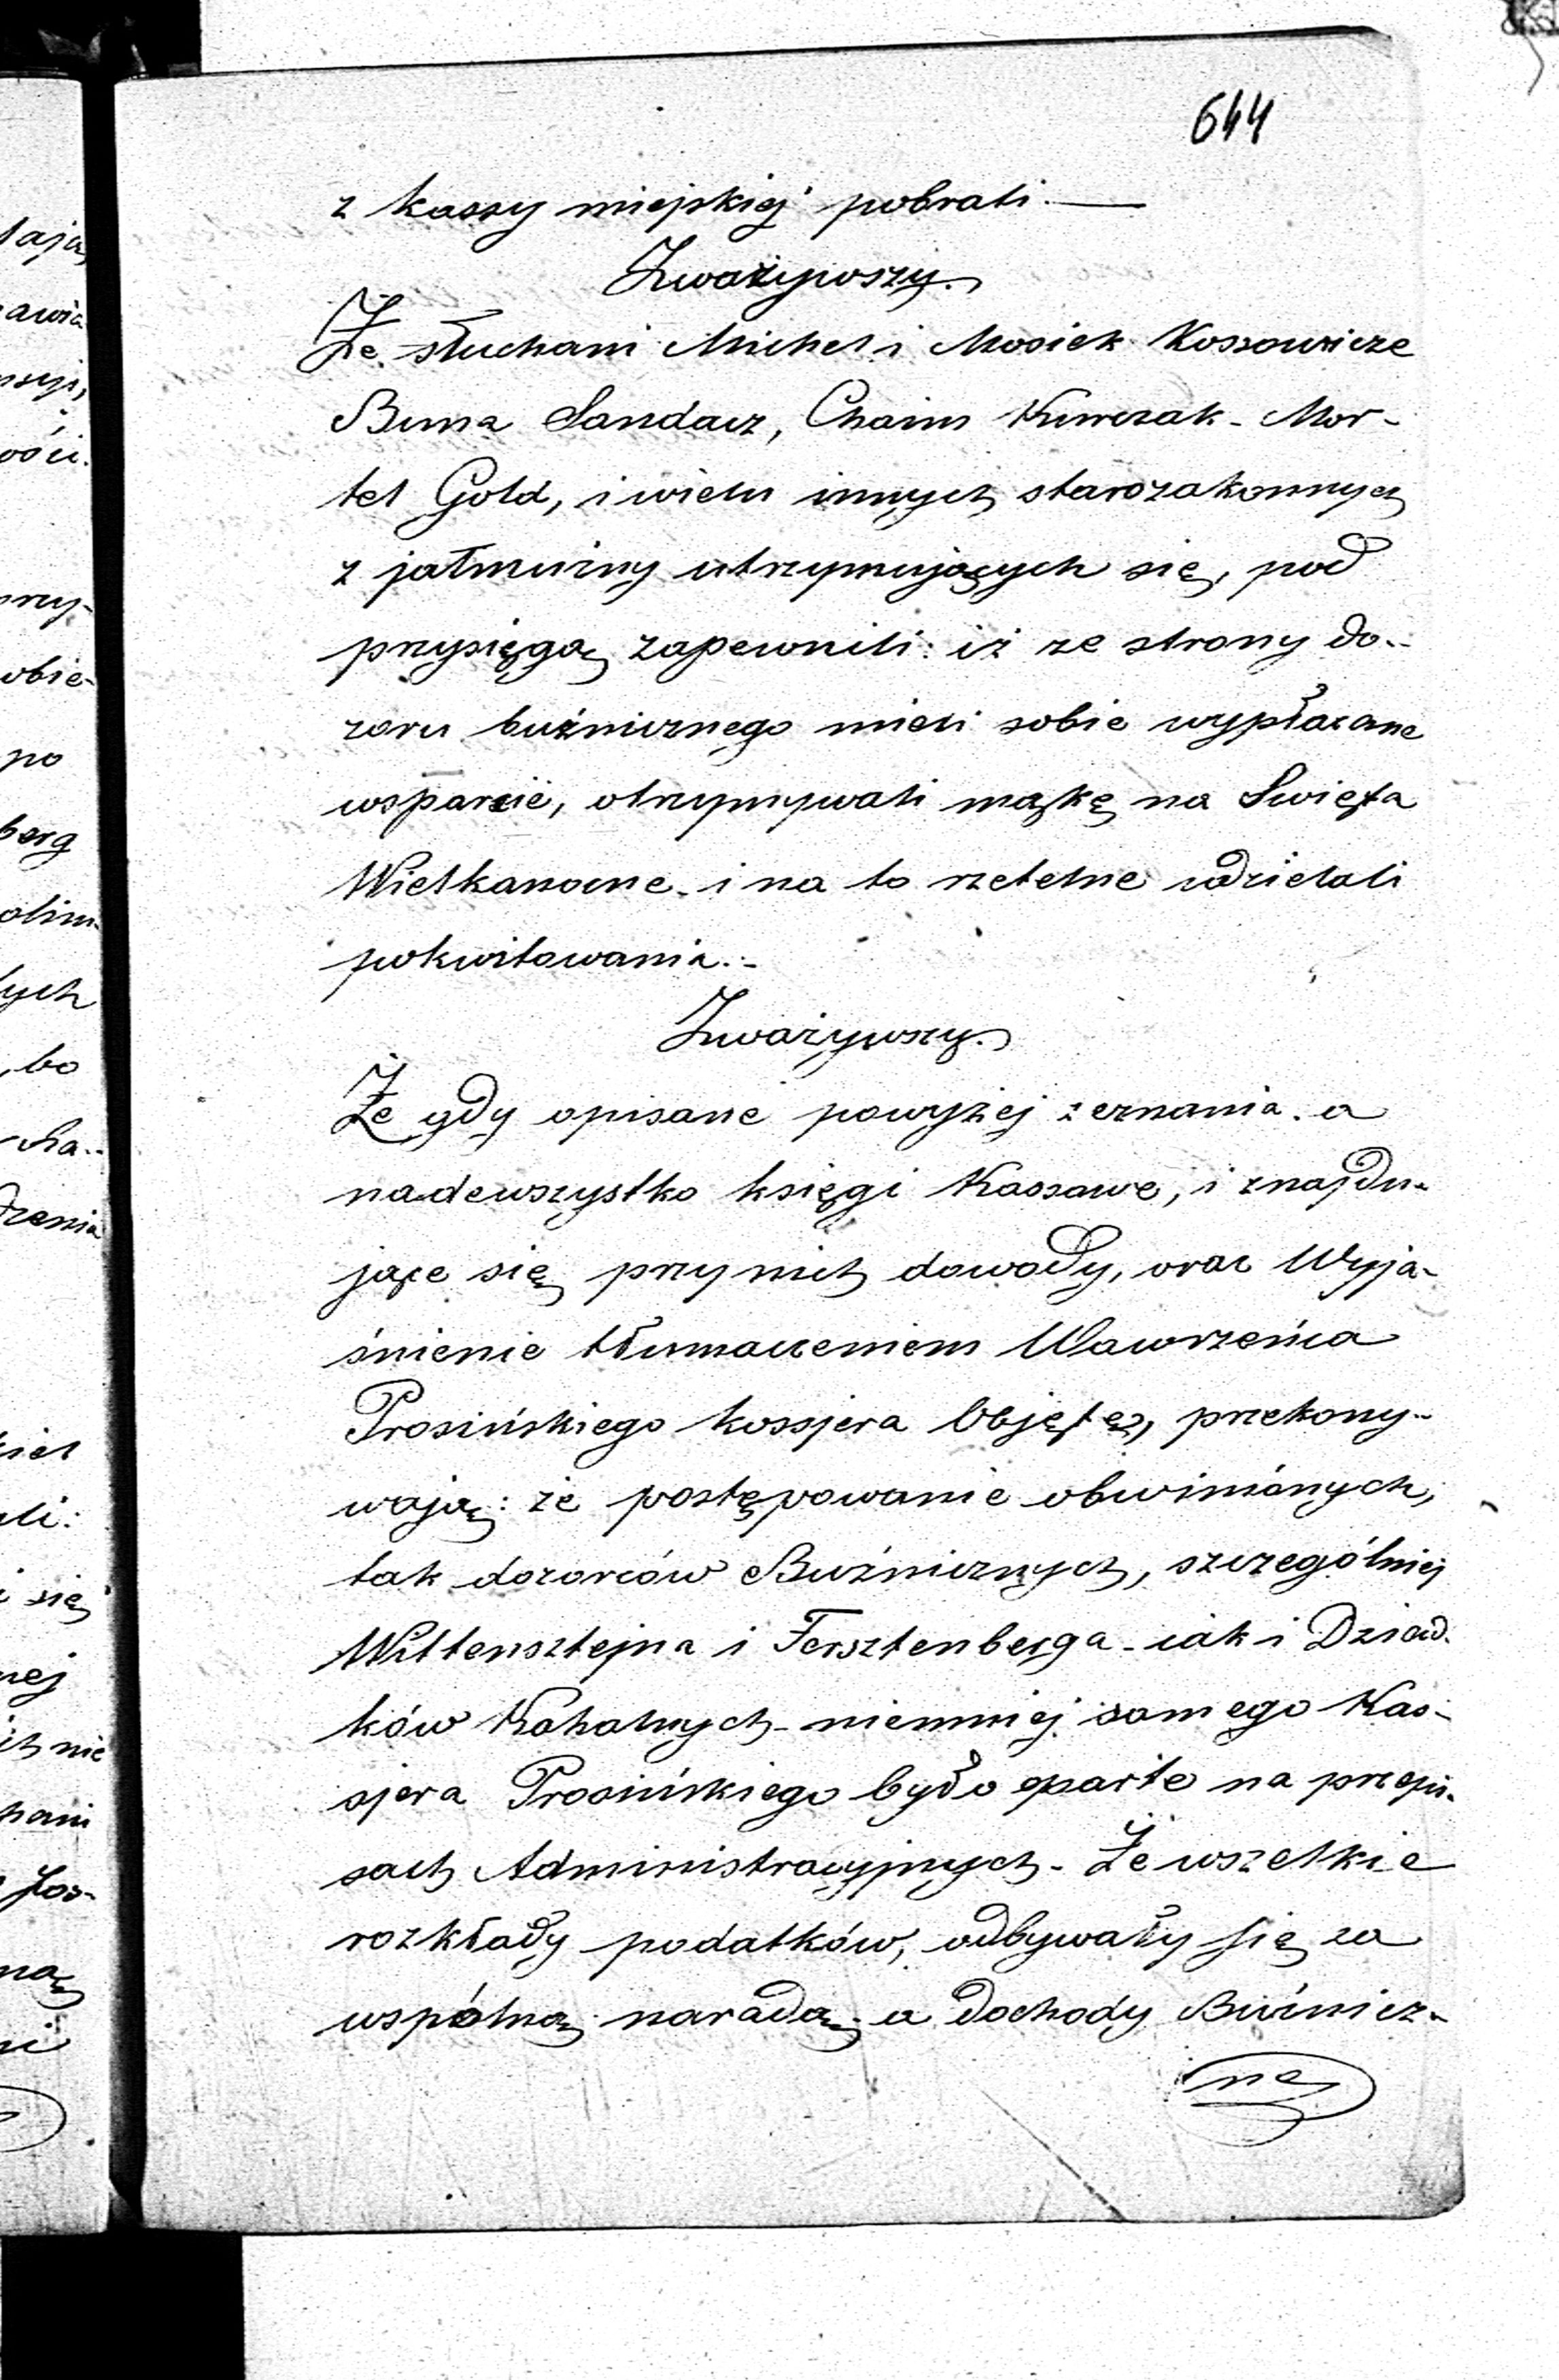 644
z kassy miejskiej pobrali.
Zważywszy.
Że słuchani Michel i Mosiek Kossowicze
Buna Sandacz, Chaim Kurczak - Mor-
tel Gold, i wielu innych starozakonnych
z jałmużny utrzymujących się, pod
przysięgą zapewnili: iż ze strony do-
zoru bużnicznego mieli sobie wypłacane
wsparcie, otrzymywali mąkę na Swięta
Wielkanocne - i na to rzetelne udzielali
pokwitowania.-
Zważywszy.
Że gdy opisane powyżej zeznania, a
nadewszystko księgi Kassowe, i znajdu-
jące się przy nich dowody, oraz Wyja-
śnienie tłumaczeniem Wawrzeńca
Prosińskiego kassjera Objęte, przekony-
wają: że postępowanie obwinionych,
tak dozorców Bużnicznych, szczególniej
Wittensztejna i Fersztenberga - iak i Dziad-
ków Kahalnych - niemniej samego Kas-
sjera Prosińskiego było oparte na przepi-
sach Administracyjnych - Że wszelkie
rozkłady podatków, odbywały się za
wspólną naradą, a dochody Bużnicz-
ne